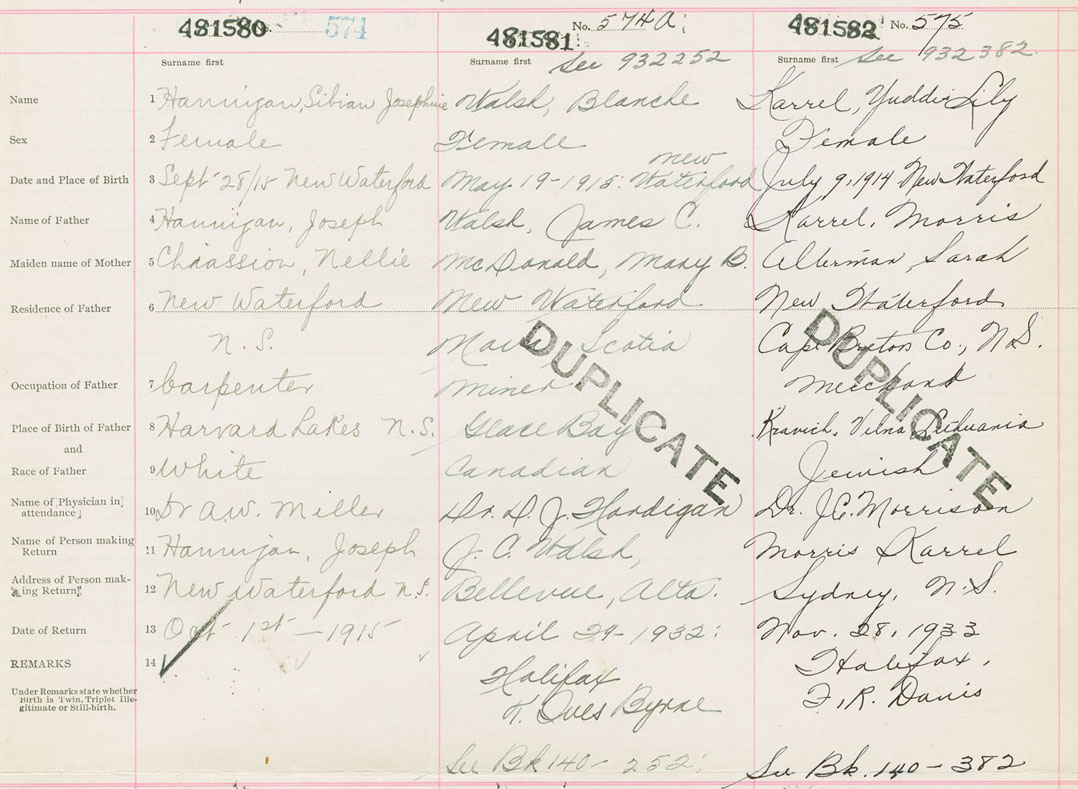 481580 574
481581 No. 574a:
481582 No. 575
Surname first
Surname first See 932252
Surname first See 932382
Name 1 Hannigan, Sibian Josephine Walsh, Blanche Karrel, Yuddis Lily
Sex 2 Female Female Female
new
Date and Place of Birth 3 Sept 28/15 New Waterford May 19-1915. Waterford July 9, 1914 New Waterford
Name of Father 4 Hannigan, Joseph Walsh, James C. Karrel, Morris
Maiden name of Mother 5 Chiassion, Nellie McDonald, Mary B. Alterman, Sarah
Residence of Father 6 New Waterford New Waterford New Waterford
N.S. Nova Scotia Cape Breton Co., N.S.
DUPLICATE DUPLICATE
Occupation of Father 7 Carpenter Miner Merchant
Place of Birth of Father 8 Harvard Lakes N.S. Glace Bay Kravich, Vilna Lithuania
and
Race of Father 9 White Canadian Jewish
Name of Physician in
attendance 10 Dr A.W. Miller Dr. D. J. Hardigan Dr. J.C. Morrison
Name of Person making
Return 11 Hannigan, Joseph J. C. Walsh, Morris Karrel
Address of Person mak-
ing Return 12 New Waterford N.S. Bellevue, Alta. Sydney, N.S.
Date of Return 13 Oct 1st - 1915 April 29-1932: Nov. 28, 1933
REMARKS 14 Halifax Halifax,
Under Remarks state whether
Birth is Twin, Triplet Ille-
gitimate or Still-birth.
Byrne F.R. Davis
See Bk 140 - 252: See Bk. 140 - 382